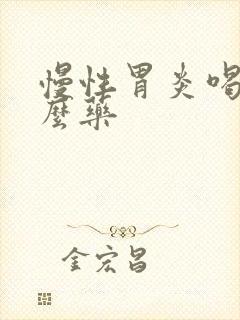 慢性胃炎喝
麼藥
金宏昌